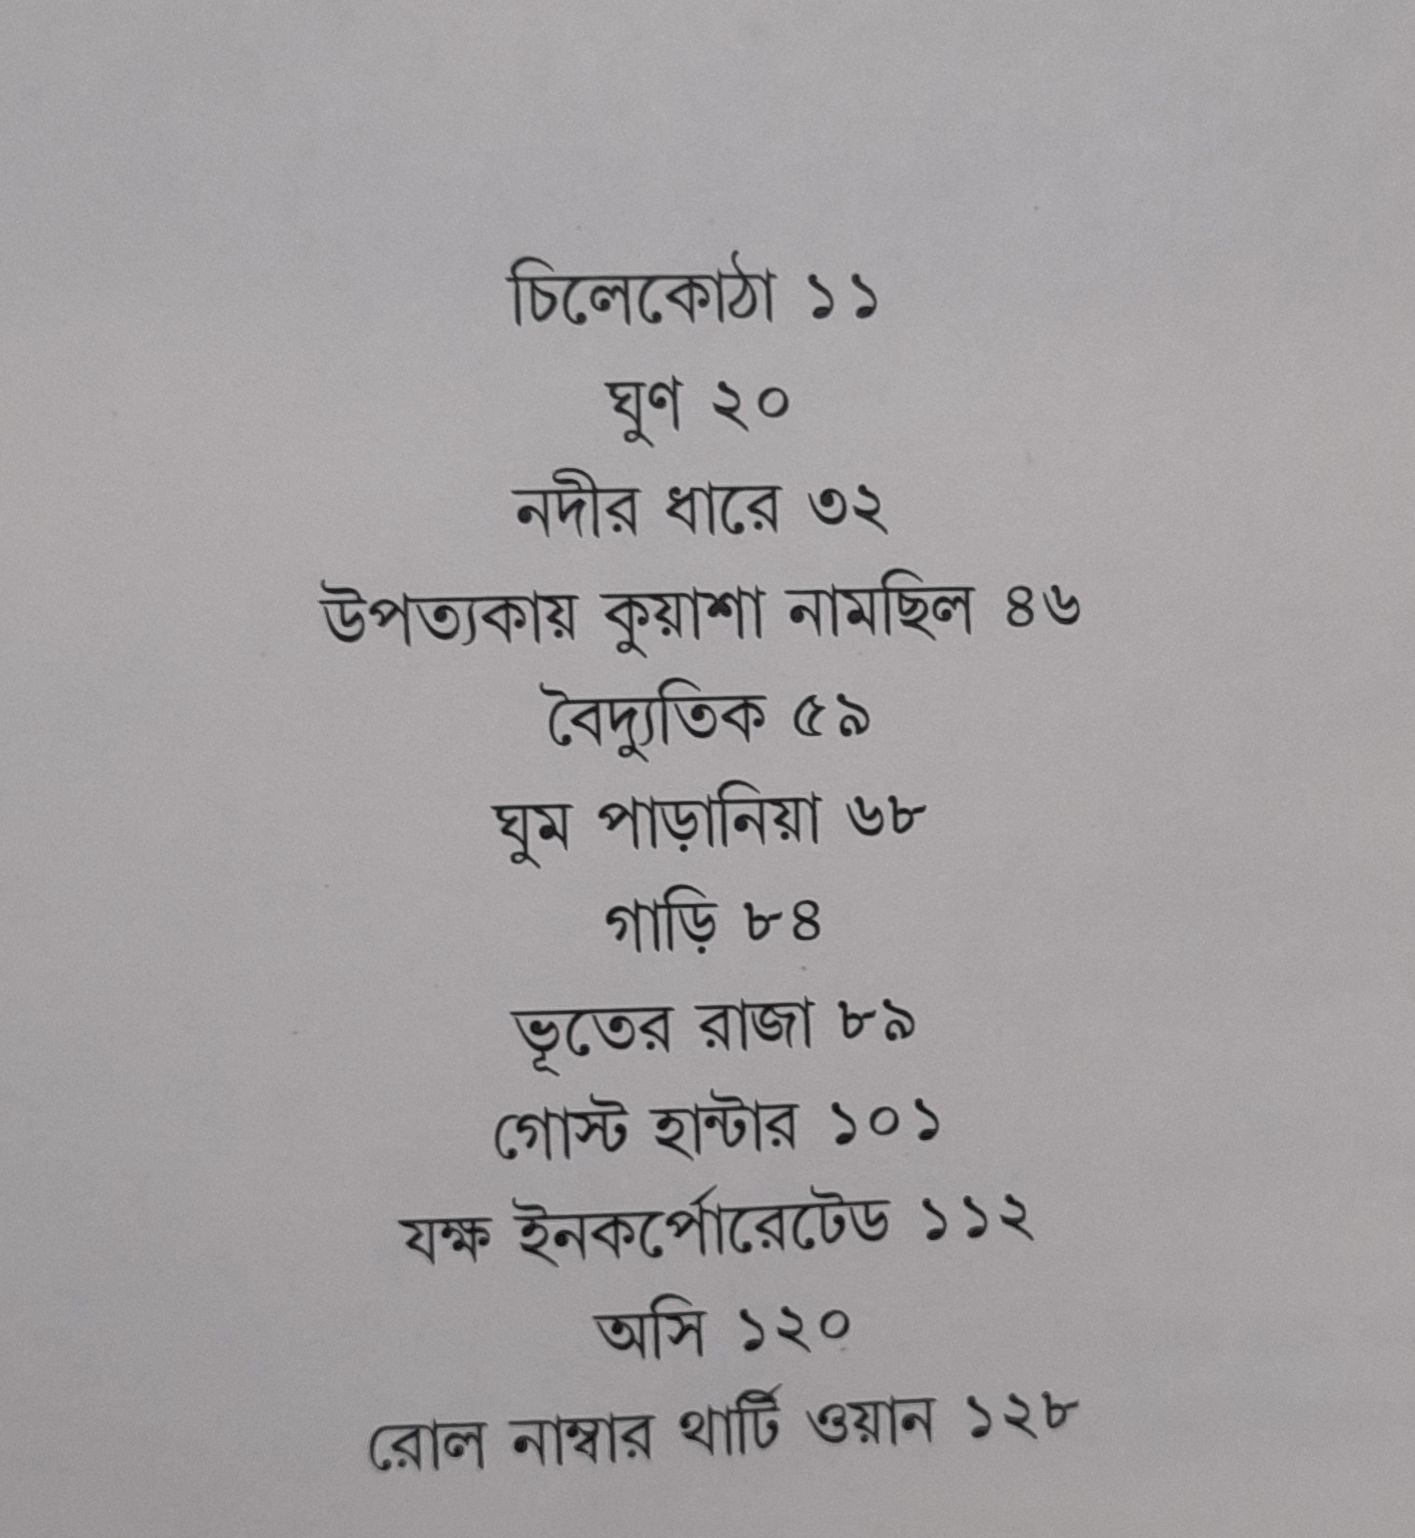 চিলেকোঠা ১১
ঘুণ ২০
নদীর ধারে ৩২
উপত্যকায় কুয়াশা নামছিল ৪৬
বৈদ্যুতিক ৫৯
ঘুম পাড়ানিয়া ৬৮
গাড়ি ৮৪
ভূতের রাজা ৮৯
গোস্ট হান্টার ১০১
যক্ষ ইনকর্পোরেটেড ১১২
অসি ১২০
রোল নাম্বার থার্টি ওয়ান ১২৮